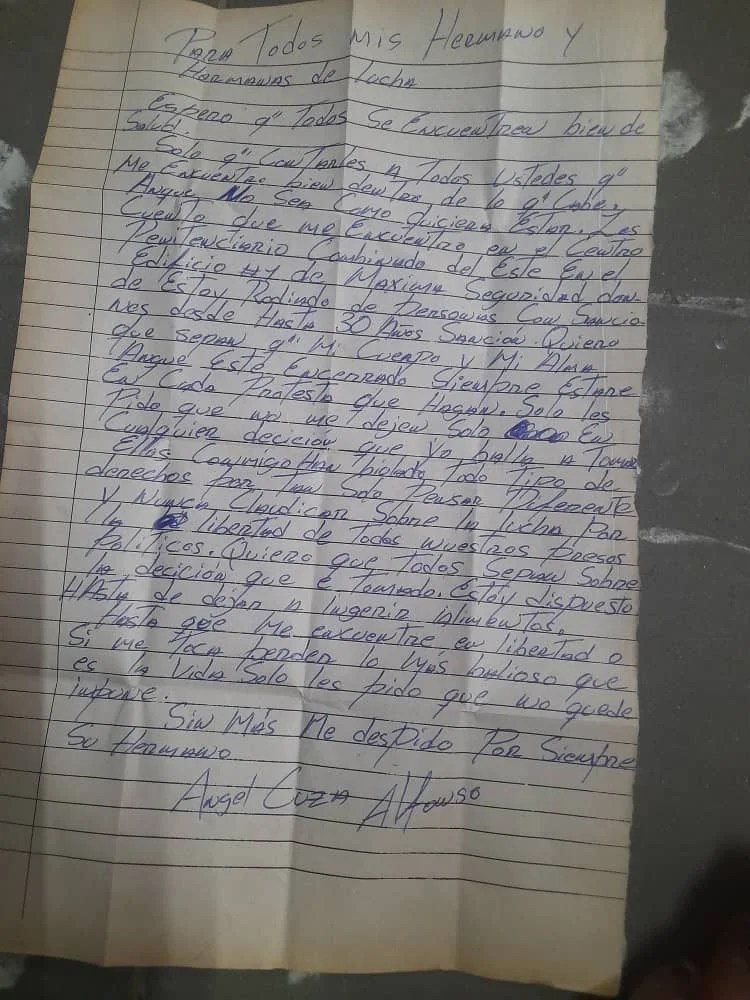 Para Todos mis Hermano y
Hermanas de lucha
Espero q" Todos Se Encuentren bien de
Salud.
Solo q" ConTarles a Todos Ustedes q"
Me Encuentro bien dentro de lo q" Cabe,
Anque No Sea Como quiciera Estar. Les
Cuento que me Encuentro en el Centro
Penitenciario Combinado del Este En el
Edificio #1 de Maxima Seguridad don-
de Estoy Rodiado de personas Con Sancio-
nes desde Hasta 30 Años Sanción. Quiero
que sepan q" Mi Cuerpo y Mi Alma
Anque Esté Encerrado Siempre Estare
En Cada Protesta que Hagan. Solo les
Pido que no me dejen Solo En
Cualquier decición que Yo balla a Tomar
Ellos Conmigo Han biolado Todo Tipo de
derechos por Tan Solo Pensar Diferente
y Nunca Claudicar Sobre la lucha Por
la libertad de Todos nuestros presos
Políticos. Quiero que Todos Sepan Sobre
la decición que E Tomado. Estoy dispuesto
HAsta de dejar a Ingerir alimentos,
Hasta que Me encuentre en libertad o
Si me Toca perder lo más balioso que
es la Vida Solo les pido que no quede
impune.
Sin Más Me despido Por Siempre
Su Hermano
Angel Cuza Alfonso